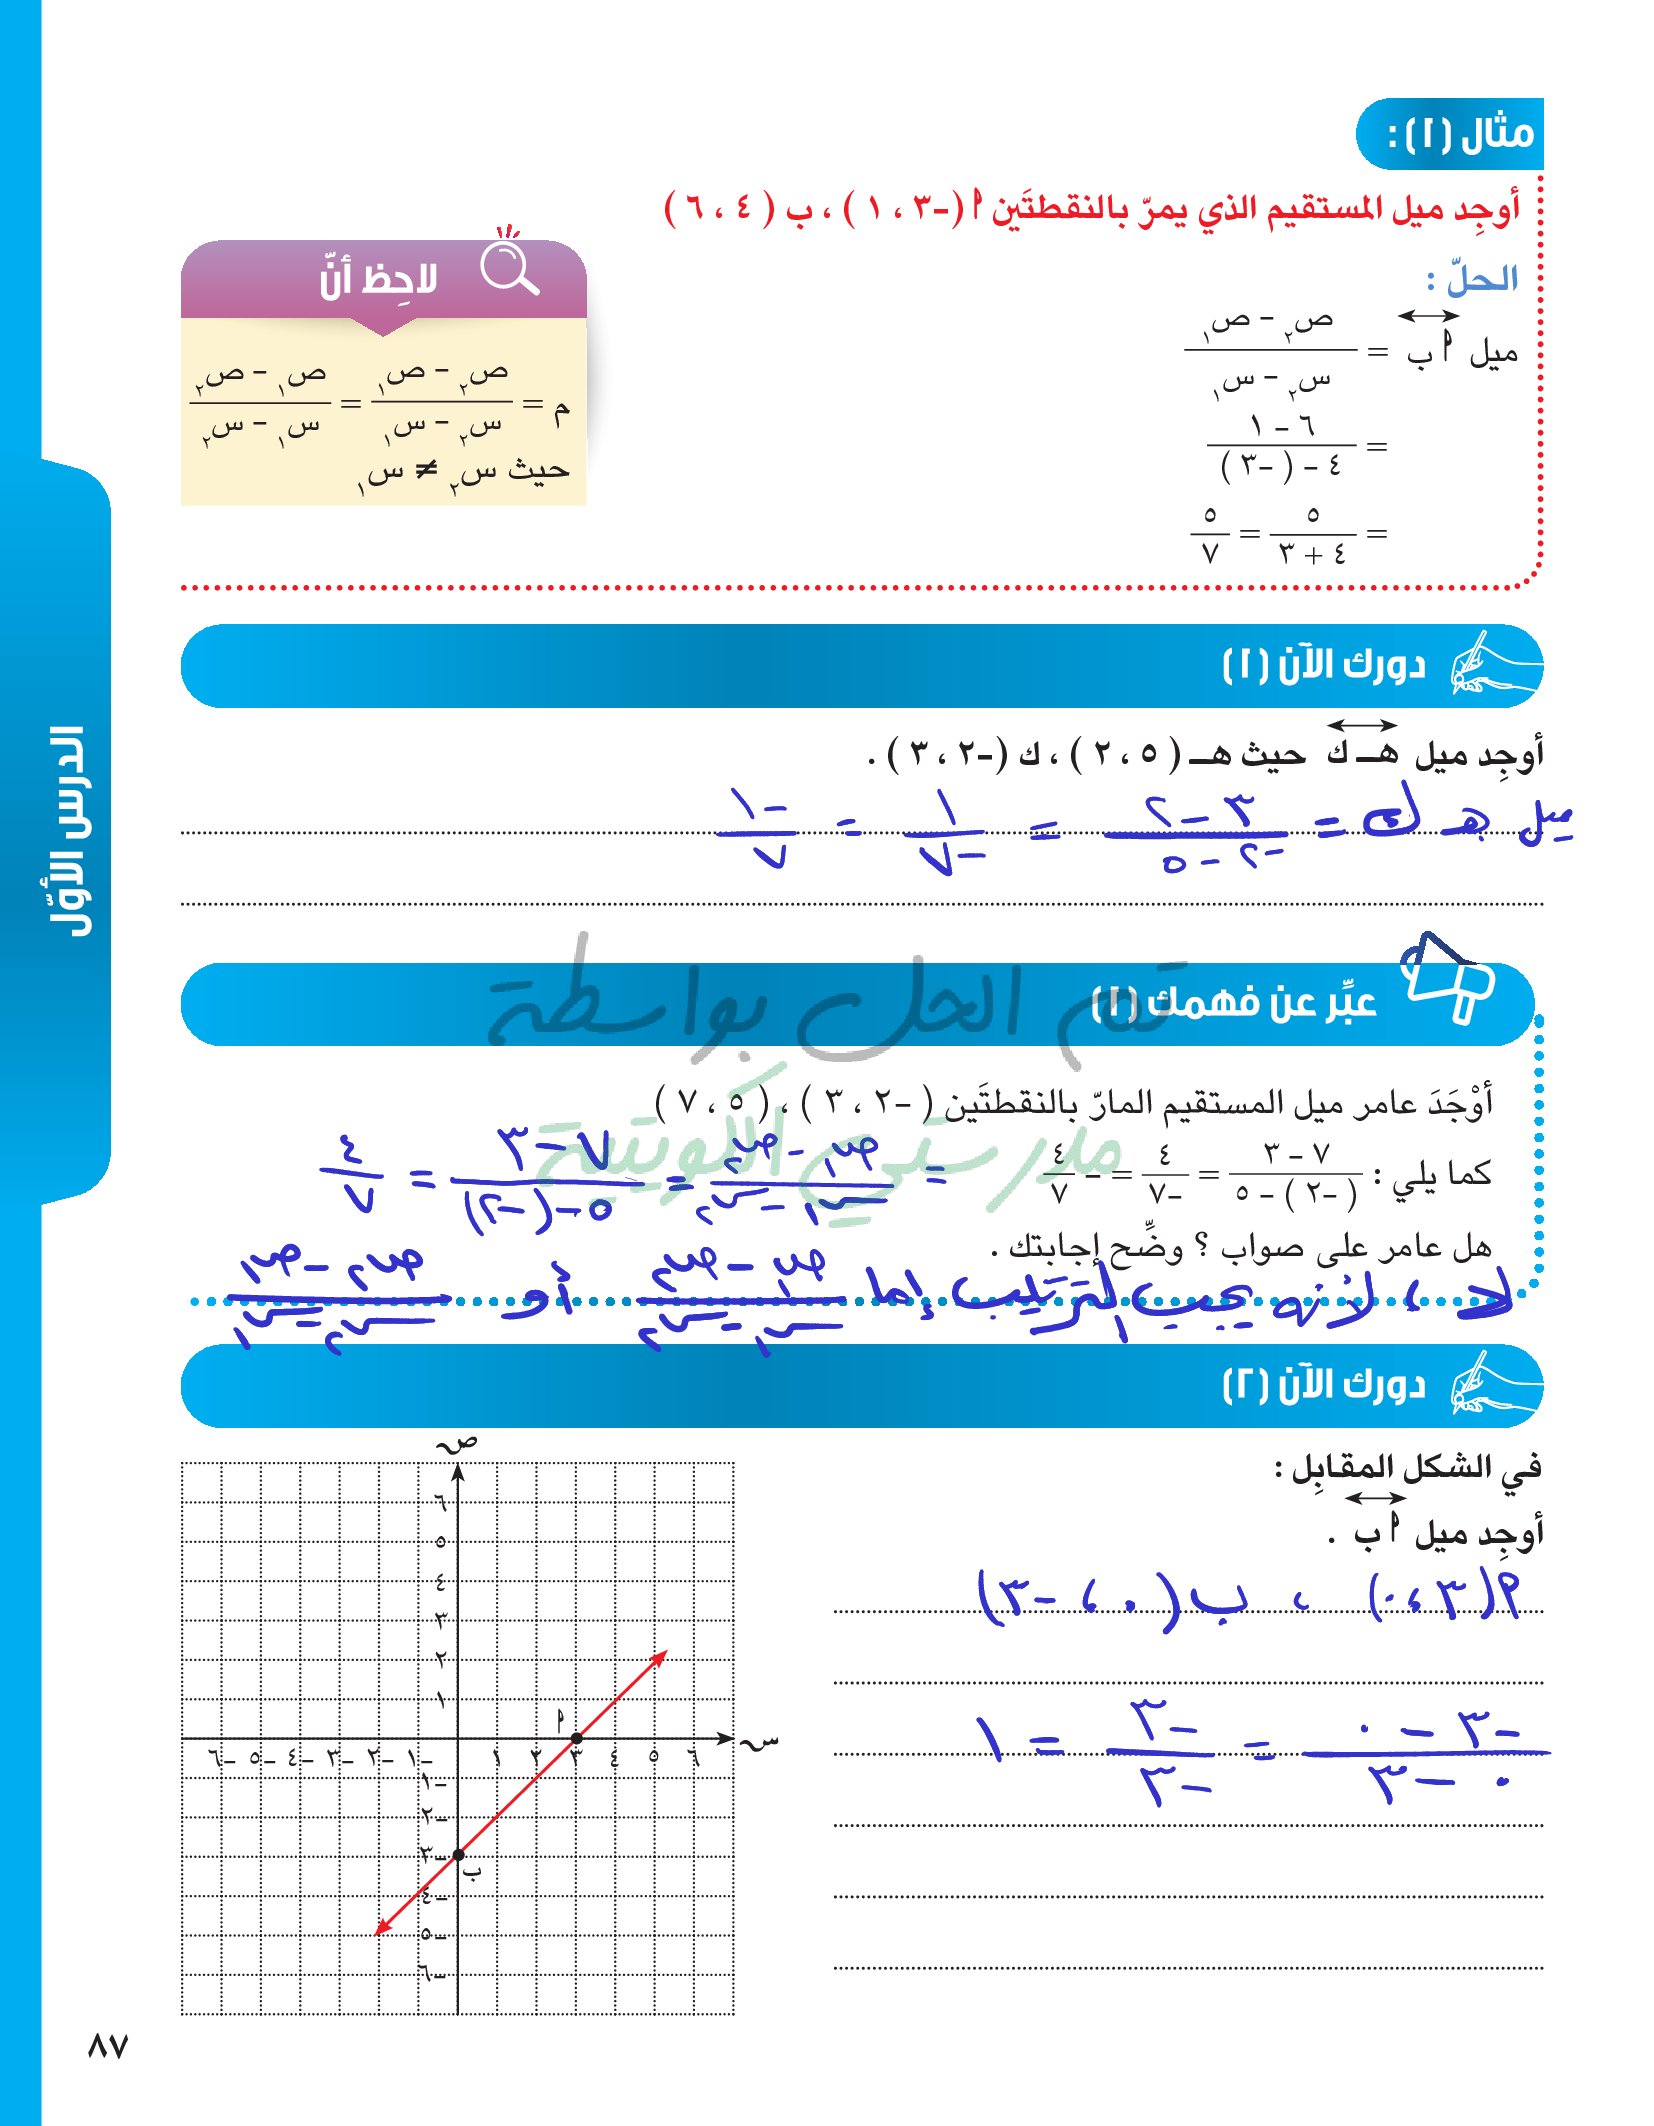 مثال (١) :
أوجِد ميل المستقيم الذي يمرّ بالنقطتَين أ (-٣ ، ١ ) ، ب ( ٤ ، ٦ )
الحلّ :
ميل أ ب = (ص٢ - ص١) / (س٢ - س١)
= (٦ - ١) / (٤ - ( -٣ ))
= ٥ / (٤ + ٣) = ٥ / ٧
لاحِظ أنّ
م = (ص٢ - ص١) / (س٢ - س١) = (ص١ - ص٢) / (س١ - س٢)
حيث س٢ ≠ س١
دورك الآن (١)
أوجِد ميل هـ ك حيث هـ ( ٥ ، ٢ ) ، ك (-٢ ، ٣ ) .
ميل هـ ك = (٣ - ٢) / (-٢ - ٥) = ١ / -٧ = -١ / ٧
عبِّر عن فهمك (١)
تم الحل بواسطة
أوْجَدَ عامر ميل المستقيم المارّ بالنقطتَين ( -٢ ، ٣ ) ، ( ٥ ، ٧ )
مدرستي الكويتية
كما يلي : (٧ - ٣) / (( -٢ ) - ٥) = ٤ / -٧ = - ٤ / ٧
= (ص١ - ص٢) / (س١ - س٢) = (٧ - ٣) / (٥ - (-٢)) = ٤ / ٧
هل عامر على صواب ؟ وضِّح إجابتك .
لا ، لأنه يجب الترتيب إما (ص١ - ص٢) / (س١ - س٢) أو (ص٢ - ص١) / (س٢ - س١)
دورك الآن (٢)
في الشكل المقابِل :
أوجِد ميل أ ب .
أ (٣ ، ٠) ، ب (٠ ، -٣)
(-٣ - ٠) / (٠ - ٣) = -٣ / -٣ = ١
ص
٦
٥
٤
٣
٢
١
أ
-٦ -٥ -٤ -٣ -٢ -١ ١ ٢ ٣ ٤ ٥ ٦ س
-١
-٢
-٣
ب
-٤
-٥
-٦
الدرس الأوّل
٨٧